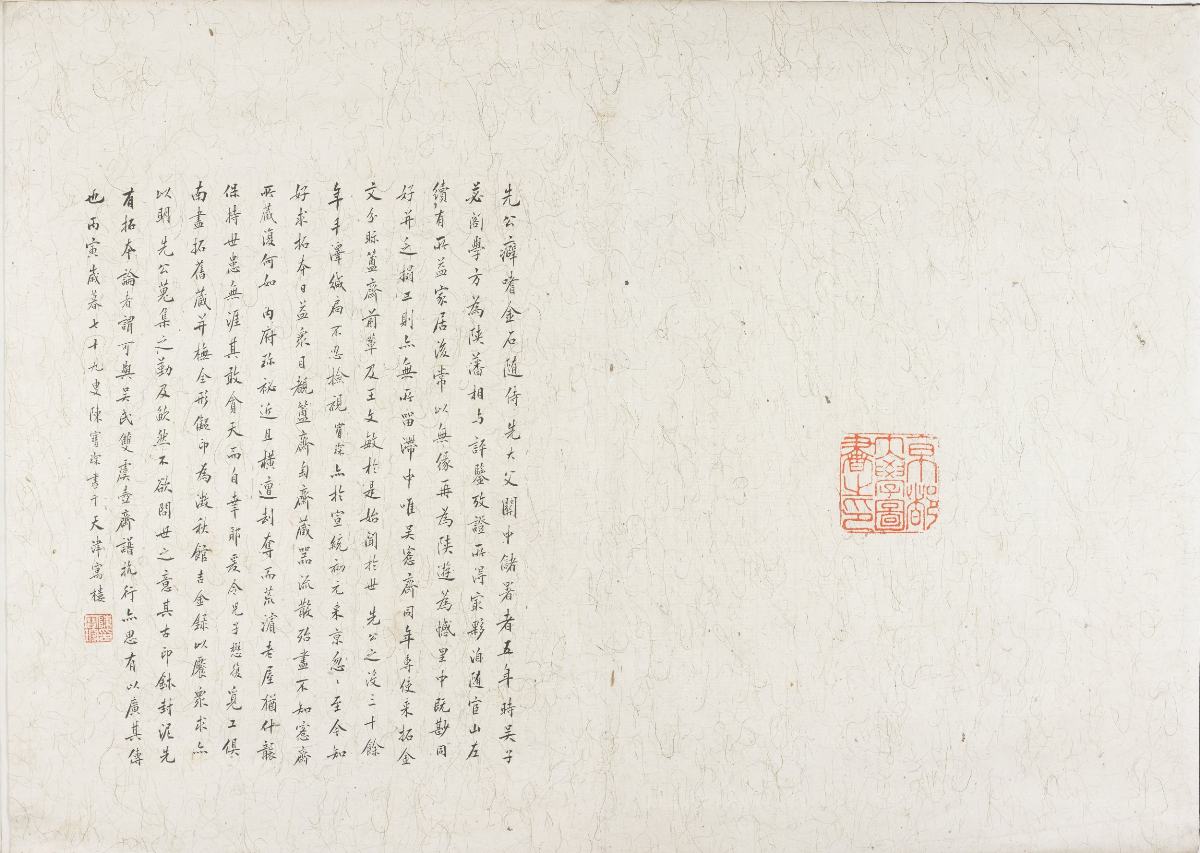 京都
大學圖
書之印
先公癖嗜金石隨侍先大父關中儲署者五年時吳子
苾閣學方為陝藩相与評鑒攷證所得寔夥洎隨宦山左
續有所益家居後常以無緣再為陝遊為憾里中既尟同
好并乏搨工則亦無所畱滯中唯吳愙齋同年專使来拓金
文分眎簠齋前輩及王文敏於是始聞於世先公之沒三十餘
年手澤緘扃不忍檢視寶琛亦於宣統初元来京忽〻至今知
好求拓本日益衆目覩簠齋匋齋藏器流散殆盡不知愙齋
所藏復何如内府珍祕近且橫遭刦奪而荒濱老屋猶什襲
保持世患無涯其敢貪天而自幸耶爰令兒子懋復覓工俱
南盡拓舊藏并橅全形鈐印為澂秋館吉金録以饜衆求亦
以明先公蒐集之勤及欿然不欲問世之意其古印鉥封泥先
有拓本論者謂可與吳氏雙虞壺齋譜抗行亦思有以廣其傳
也丙寅歲暮七十九叟陳寶琛書于天津寓樓